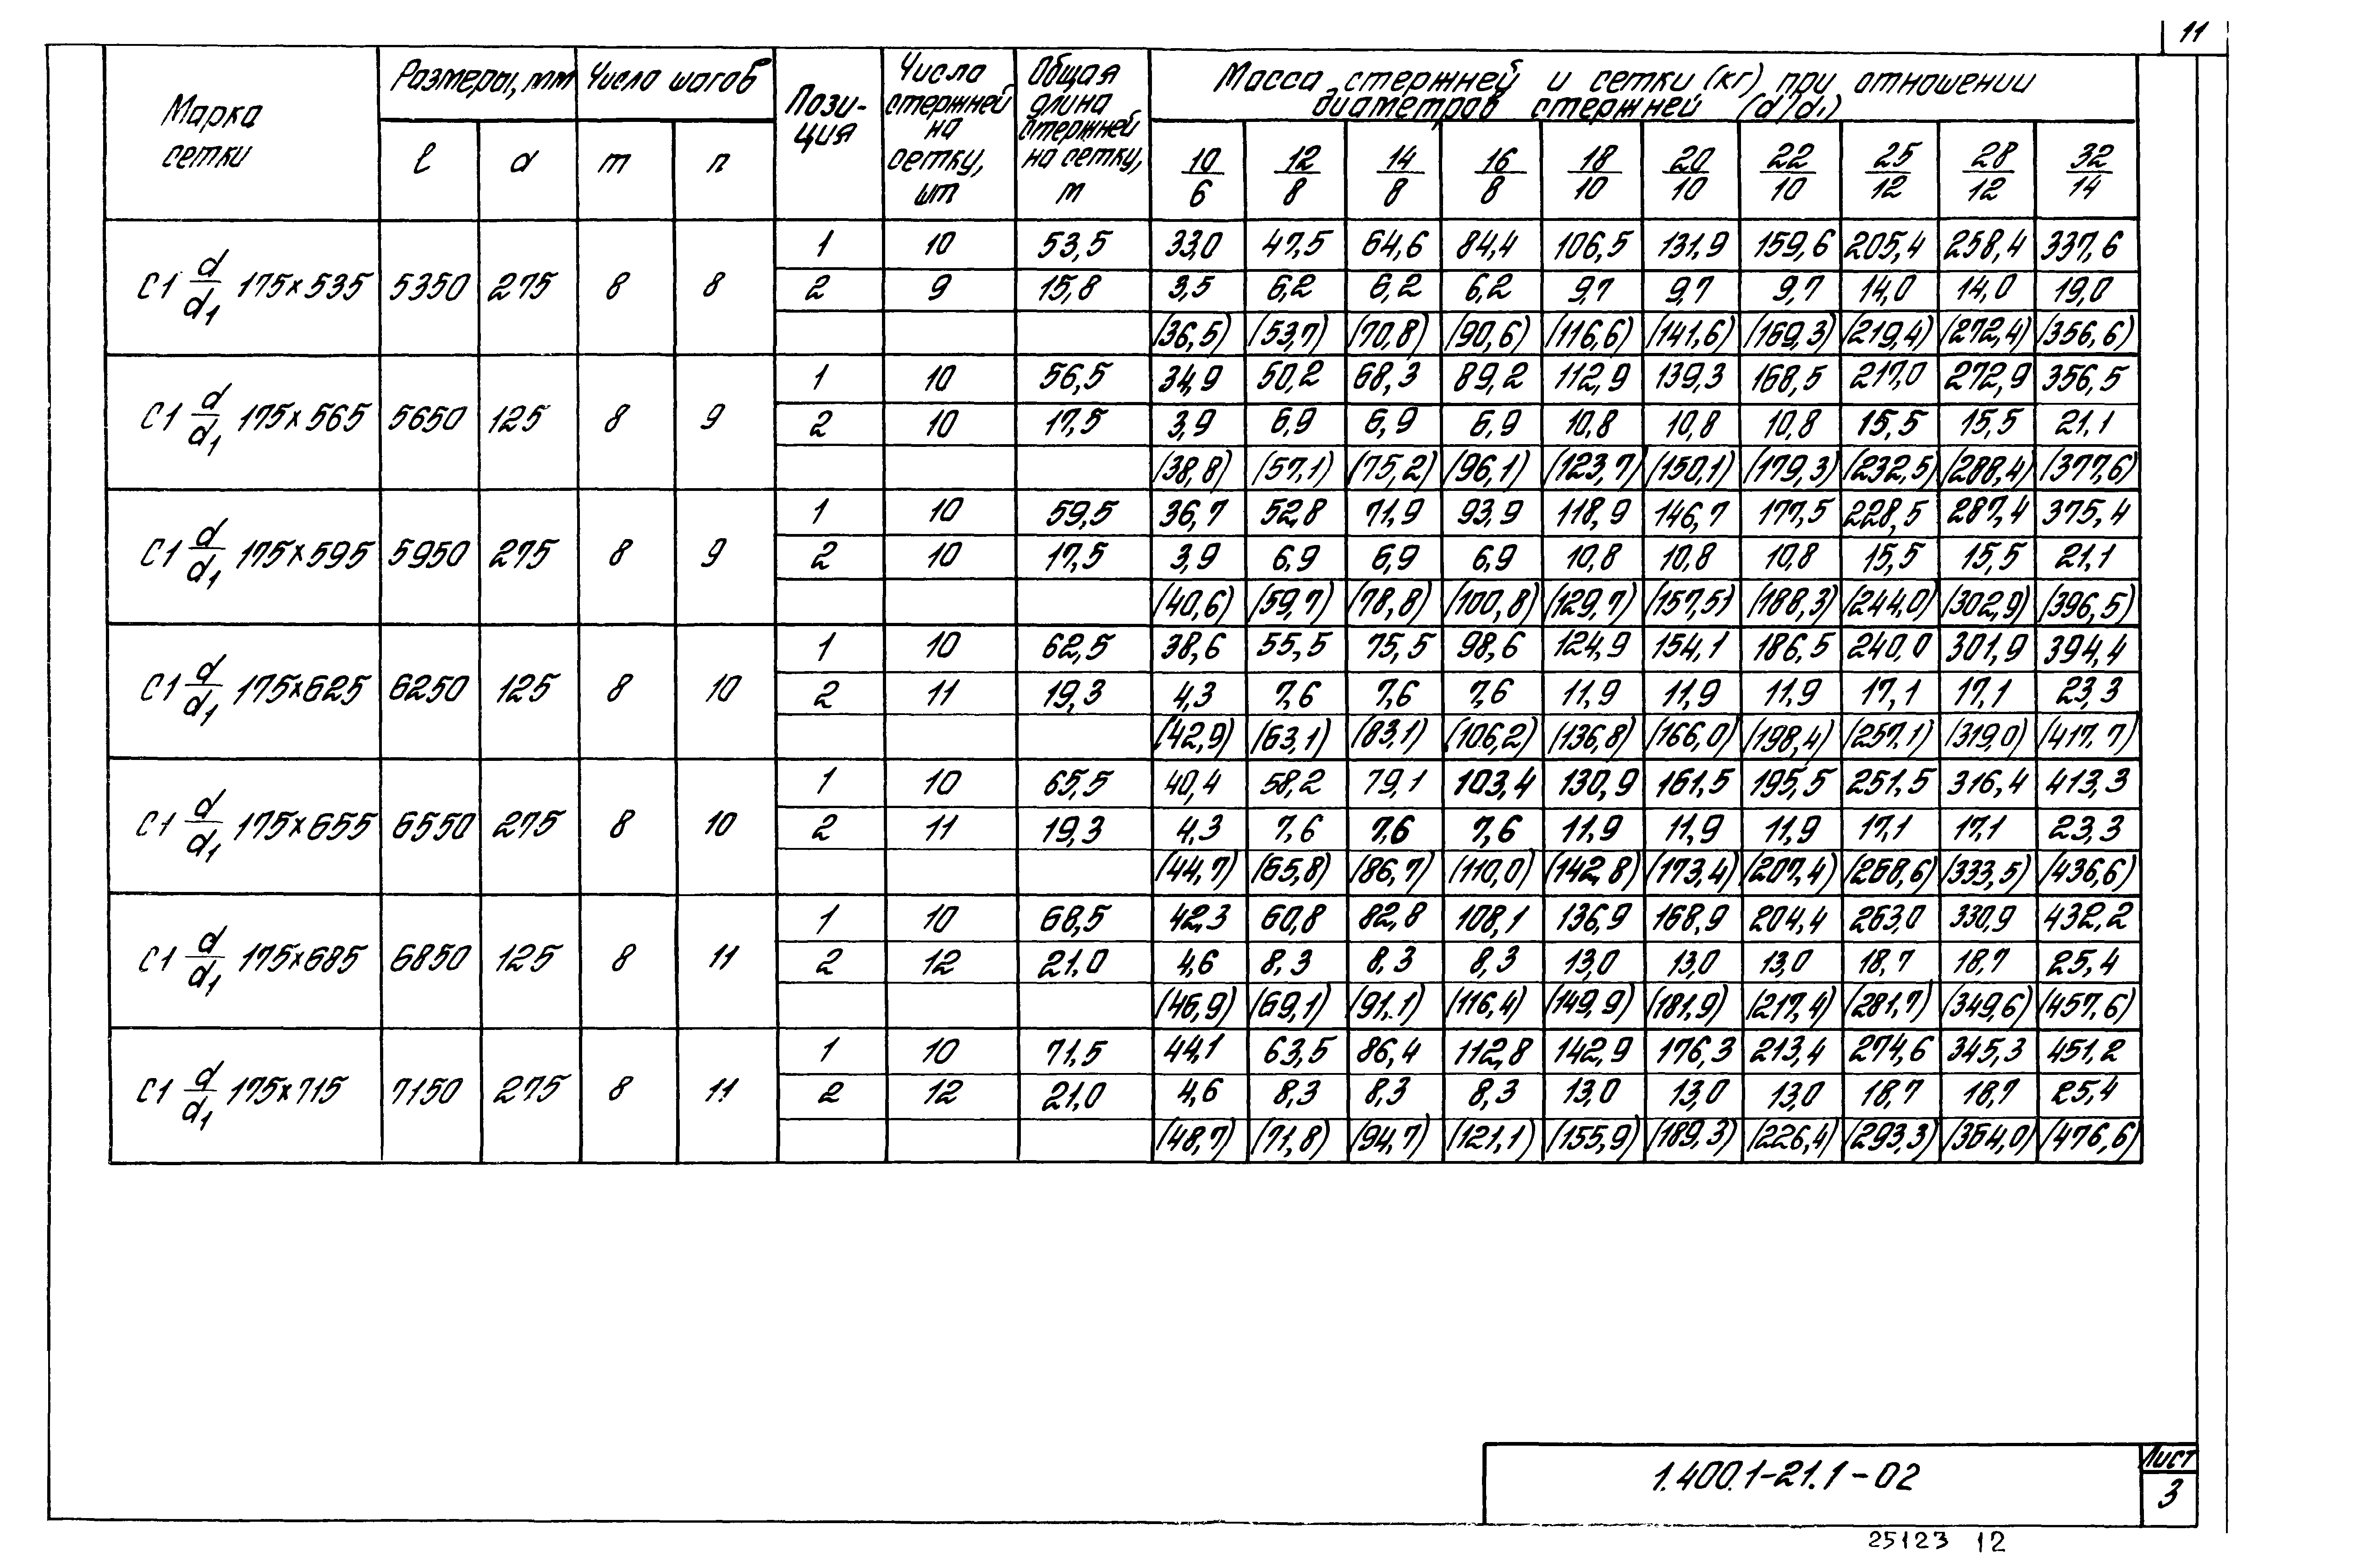 11
Марка сетки | Размеры, мм | Число шагов | Пози-ция | Число стержней на сетку, шт | Общая длина стержней на сетку, м | Масса стержней и сетки (кг) при отношении диаметров стержней (d/d1)
l | a | m | n | 10/6 | 12/8 | 14/8 | 16/8 | 18/10 | 20/10 | 22/10 | 25/12 | 28/12 | 32/14
1 | 10 | 53,5 | 33,0 | 47,5 | 64,6 | 84,4 | 106,5 | 131,9 | 159,6 | 205,4 | 258,4 | 337,6
С1 d/d1 175×535 | 5350 | 275 | 8 | 8 | 2 | 9 | 15,8 | 3,5 | 6,2 | 6,2 | 6,2 | 9,7 | 9,7 | 9,7 | 14,0 | 14,0 | 19,0
(36,5) | (53,7) | (70,8) | (90,6) | (116,6) | (141,6) | (169,3) | (219,4) | (272,4) | (356,6)
1 | 10 | 56,5 | 34,9 | 50,2 | 68,3 | 89,2 | 112,9 | 139,3 | 168,5 | 217,0 | 272,9 | 356,5
С1 d/d1 175×565 | 5650 | 125 | 8 | 9 | 2 | 10 | 17,5 | 3,9 | 6,9 | 6,9 | 6,9 | 10,8 | 10,8 | 10,8 | 15,5 | 15,5 | 21,1
(38,8) | (57,1) | (75,2) | (96,1) | (123,7) | (150,1) | (179,3) | (232,5) | (288,4) | (377,6)
1 | 10 | 59,5 | 36,7 | 52,8 | 71,9 | 93,9 | 118,9 | 146,7 | 177,5 | 228,5 | 287,4 | 375,4
С1 d/d1 175×595 | 5950 | 275 | 8 | 9 | 2 | 10 | 17,5 | 3,9 | 6,9 | 6,9 | 6,9 | 10,8 | 10,8 | 10,8 | 15,5 | 15,5 | 21,1
(40,6) | (59,7) | (78,8) | (100,8) | (129,7) | (157,5) | (188,3) | (244,0) | (302,9) | (396,5)
1 | 10 | 62,5 | 38,6 | 55,5 | 75,5 | 98,6 | 124,9 | 154,1 | 186,5 | 240,0 | 301,9 | 394,4
С1 d/d1 175×625 | 6250 | 125 | 8 | 10 | 2 | 11 | 19,3 | 4,3 | 7,6 | 7,6 | 7,6 | 11,9 | 11,9 | 11,9 | 17,1 | 17,1 | 23,3
(42,9) | (63,1) | (83,1) | (106,2) | (136,8) | (166,0) | (198,4) | (257,1) | (319,0) | (417,7)
1 | 10 | 65,5 | 40,4 | 58,2 | 79,1 | 103,4 | 130,9 | 161,5 | 195,5 | 251,5 | 316,4 | 413,3
С1 d/d1 175×655 | 6550 | 275 | 8 | 10 | 2 | 11 | 19,3 | 4,3 | 7,6 | 7,6 | 7,6 | 11,9 | 11,9 | 11,9 | 17,1 | 17,1 | 23,3
(44,7) | (65,8) | (86,7) | (110,0) | (142,8) | (173,4) | (207,4) | (268,6) | (333,5) | (436,6)
1 | 10 | 68,5 | 42,3 | 60,8 | 82,8 | 108,1 | 136,9 | 168,9 | 204,4 | 263,0 | 330,9 | 432,2
С1 d/d1 175×685 | 6850 | 125 | 8 | 11 | 2 | 12 | 21,0 | 4,6 | 8,3 | 8,3 | 8,3 | 13,0 | 13,0 | 13,0 | 18,7 | 18,7 | 25,4
(46,9) | (69,1) | (91,1) | (116,4) | (149,9) | (181,9) | (217,4) | (281,7) | (349,6) | (457,6)
1 | 10 | 71,5 | 44,1 | 63,5 | 86,4 | 112,8 | 142,9 | 176,3 | 213,4 | 274,6 | 345,3 | 451,2
С1 d/d1 175×715 | 7150 | 275 | 8 | 11 | 2 | 12 | 21,0 | 4,6 | 8,3 | 8,3 | 8,3 | 13,0 | 13,0 | 13,0 | 18,7 | 18,7 | 25,4
(48,7) | (71,8) | (94,7) | (121,1) | (155,9) | (189,3) | (226,4) | (293,3) | (364,0) | (476,6)
1.400.1-21.1-02
Лист
3
25123 12